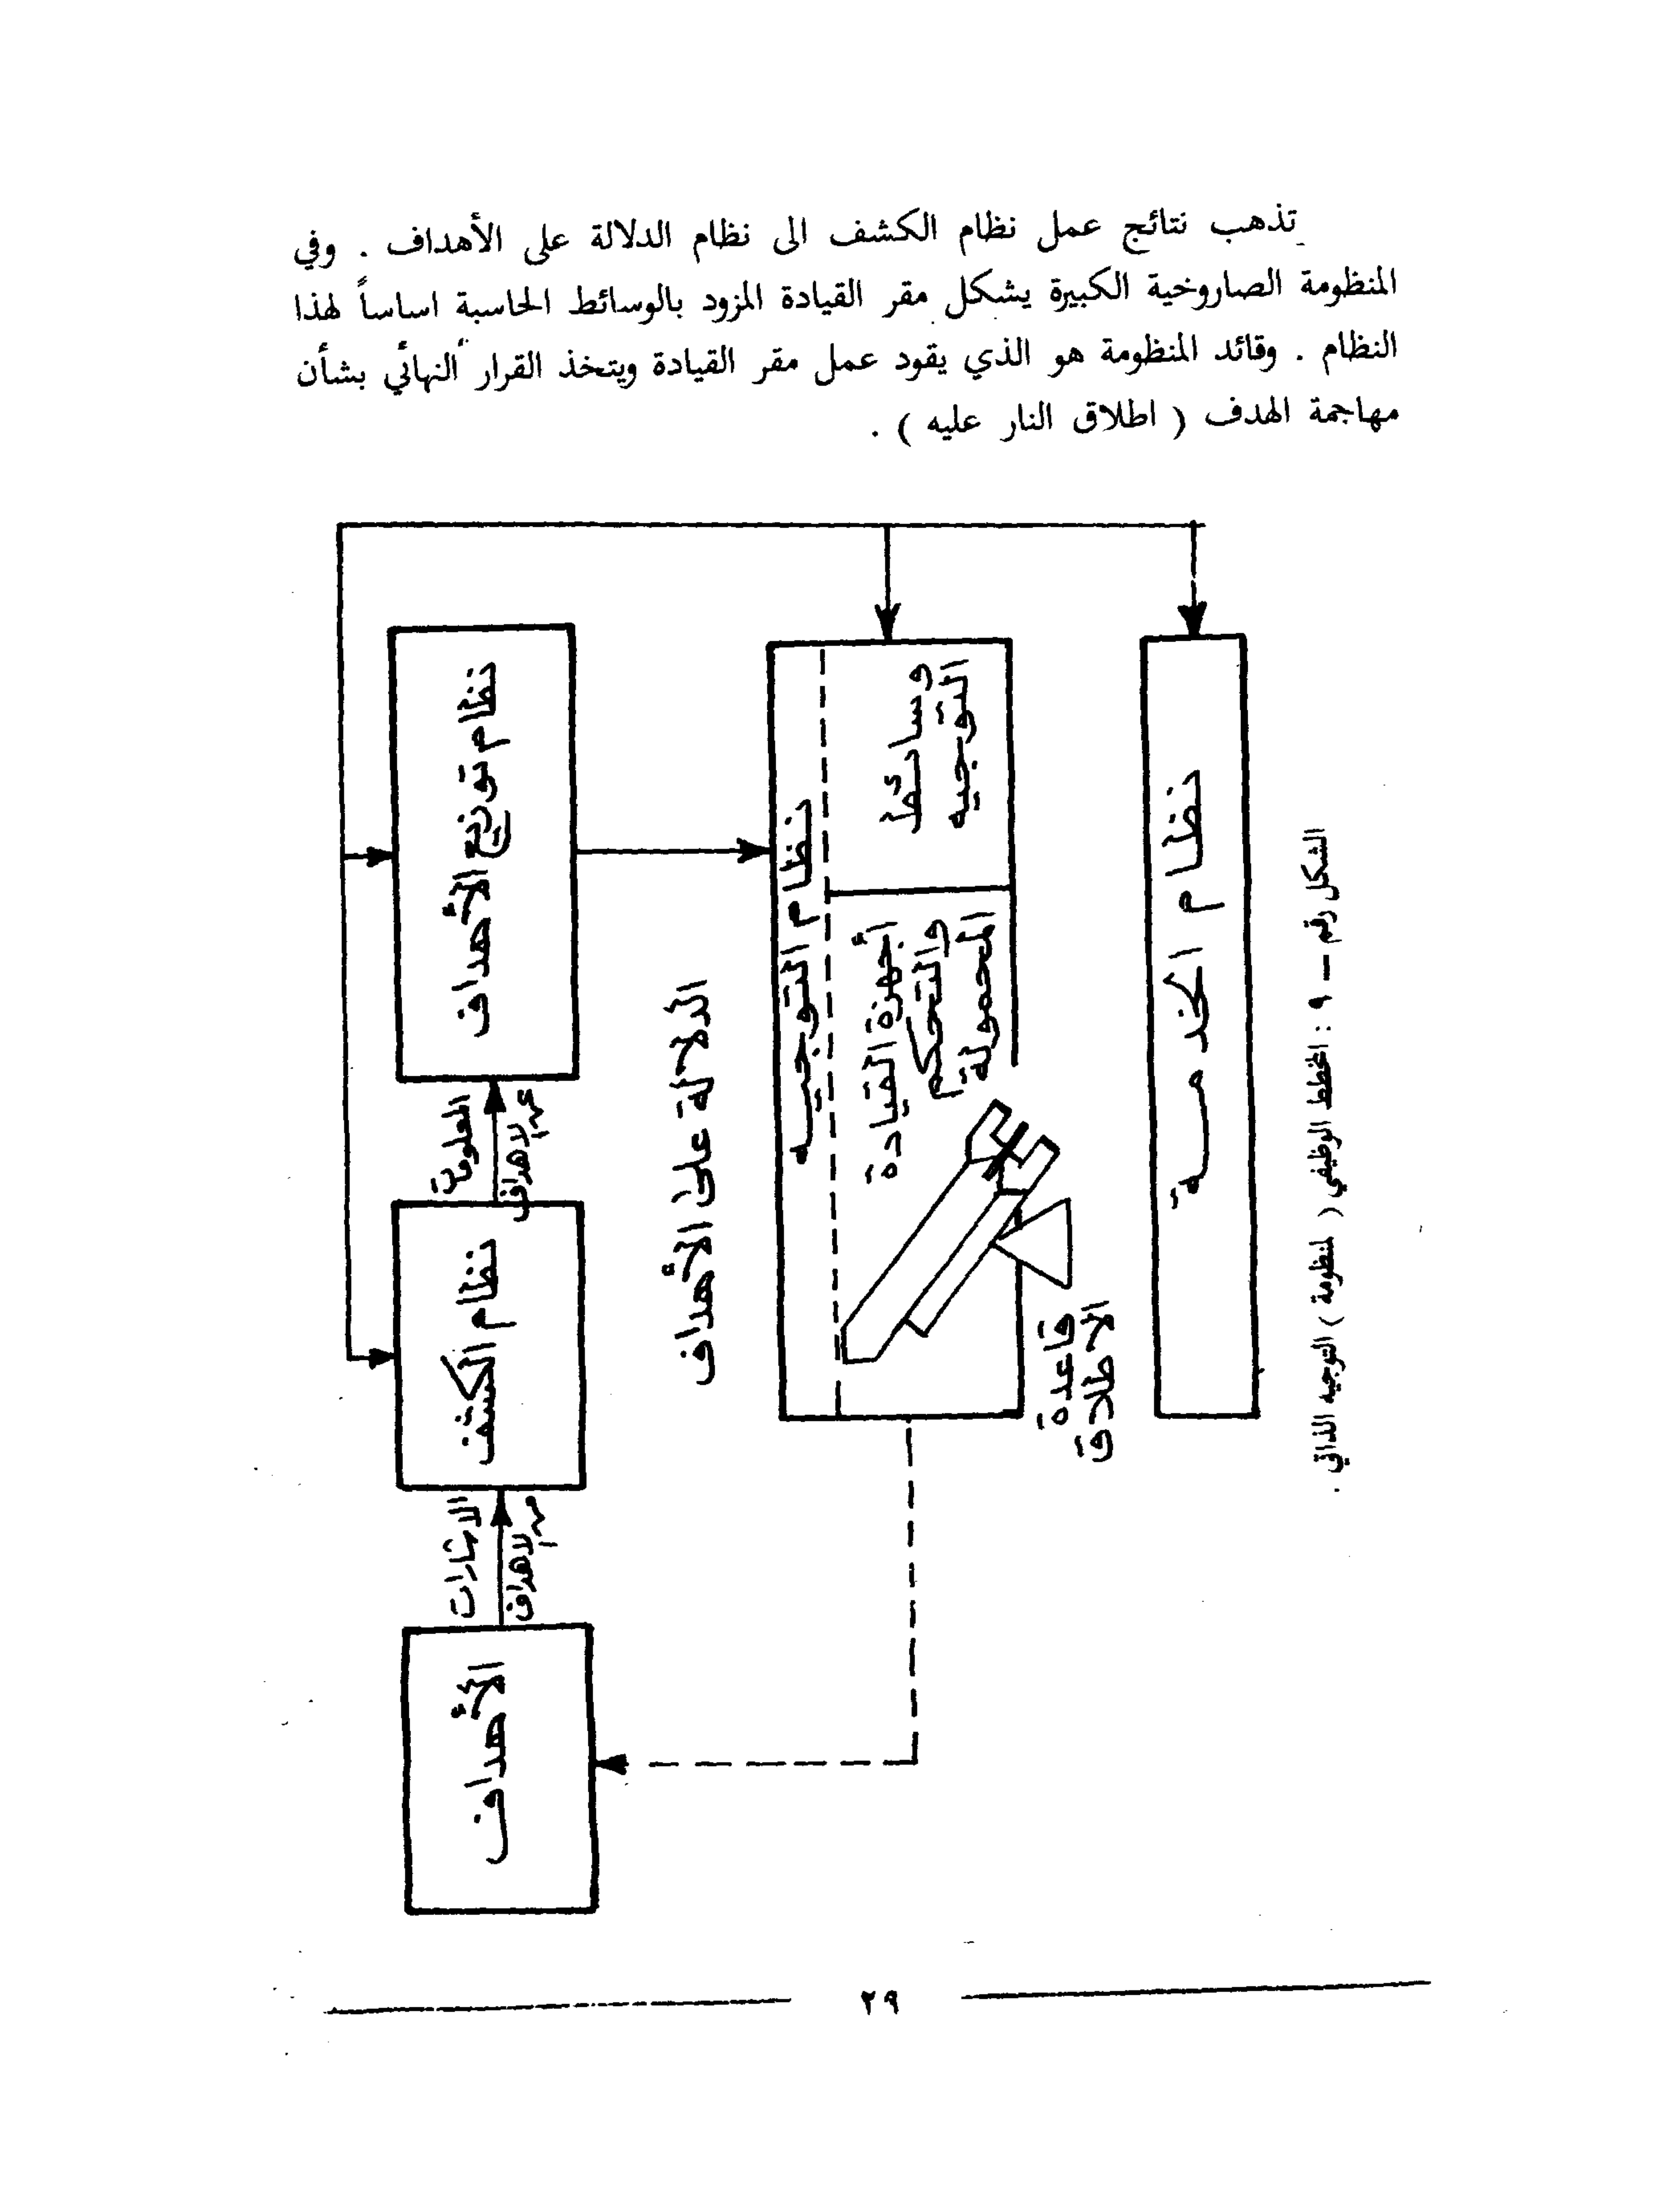 تذهب نتائج عمل نظام الكشف الى نظام الدلالة على الأهداف . وفي
المنظومة الصاروخية الكبيرة يشكل مقر القيادة المزود بالوسائط الحاسبة اساساً لهذا
النظام . وقائد المنظومة هو الذي يقود عمل مقر القيادة ويتخذ القرار النهائي بشأن
مهاجمة الهدف ( اطلاق النار عليه ) .
نظام توزيع الأهداف
المعلومات
عن الاهداف
نظام الكشف
الاشارات
من الاهداف
الأهداف
الدلالة على الأهداف
نظام التوجيه
وسائط
التوجيه
أجهزة القيادة
والتحكم
المحمولة
قاعدة
الاطلاق
نظام الخدمة
الشكل رقم – ٩ : المخطط الوظيفي ( لمنظومة ) التوجيه الذاتي .
٢٩